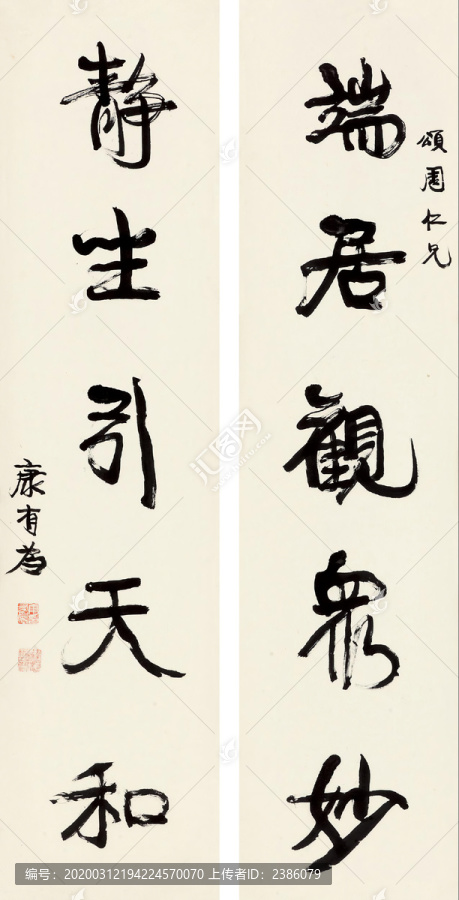 頌周仁兄
端居觀眾妙
靜坐引天和
康有為
汇图网
编号：20200312194224570070 上传者ID：2386079